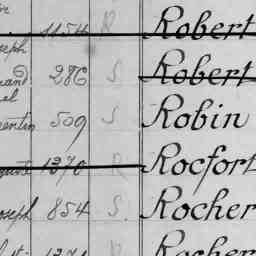 1154 R Robert
seph
286 S Robert
el
entin 509 S Robin
1370 R Rocfort
oseph 854 S. Rocher
Rocher